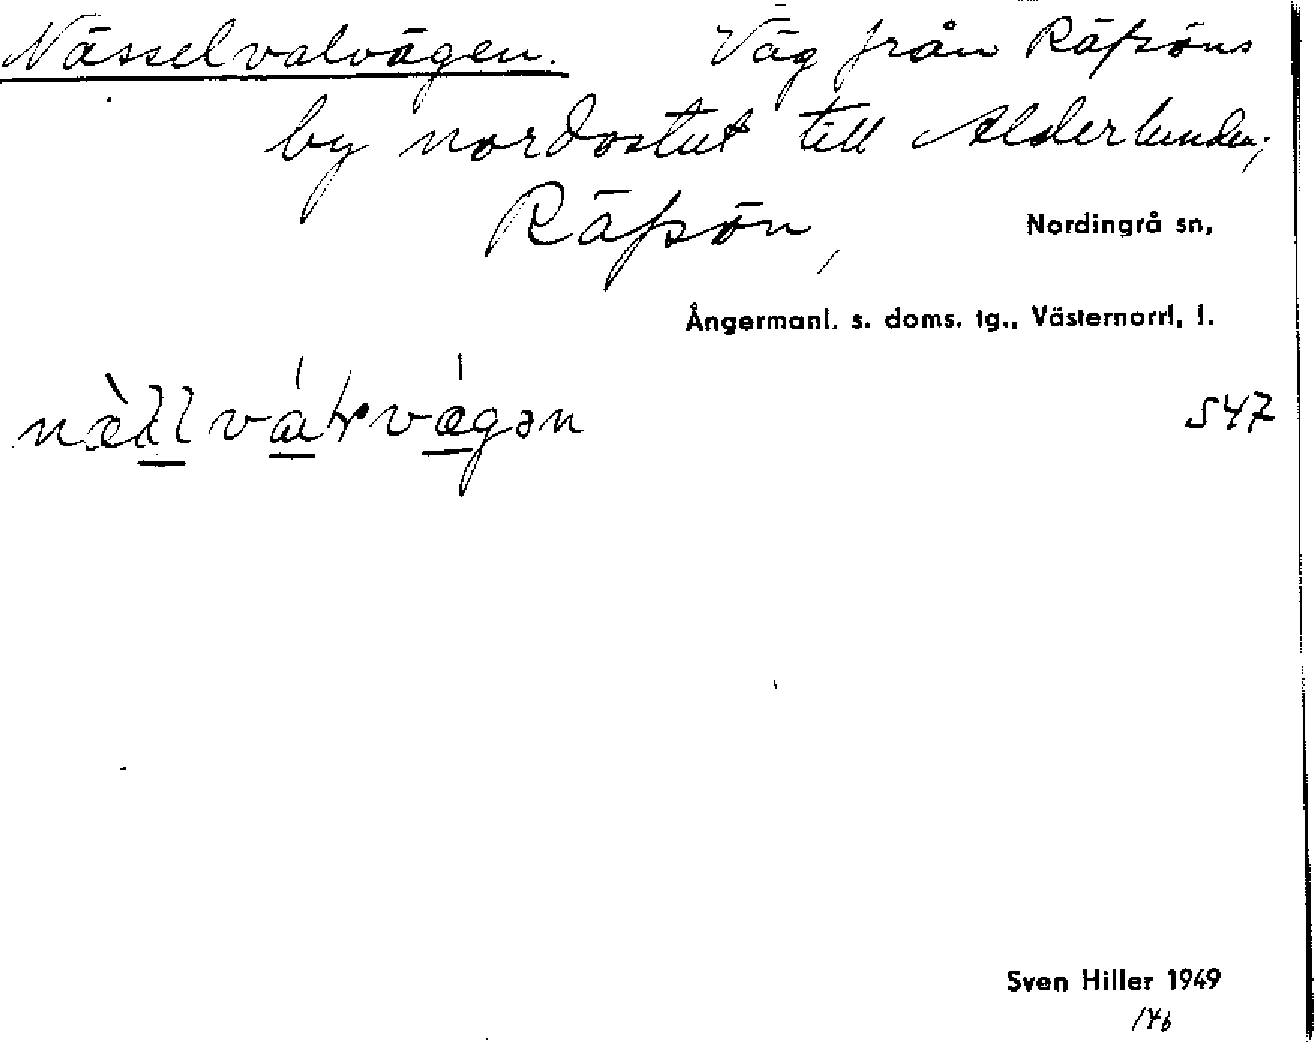 Nässelvalvägen. Väg från Räfsöns
by nordostut till Alderlunden;
Räfsön,
Nordingrå sn,
Ångermanl. s. doms. tg., Västernorrl. l.
547
Sven Hiller 1949
146